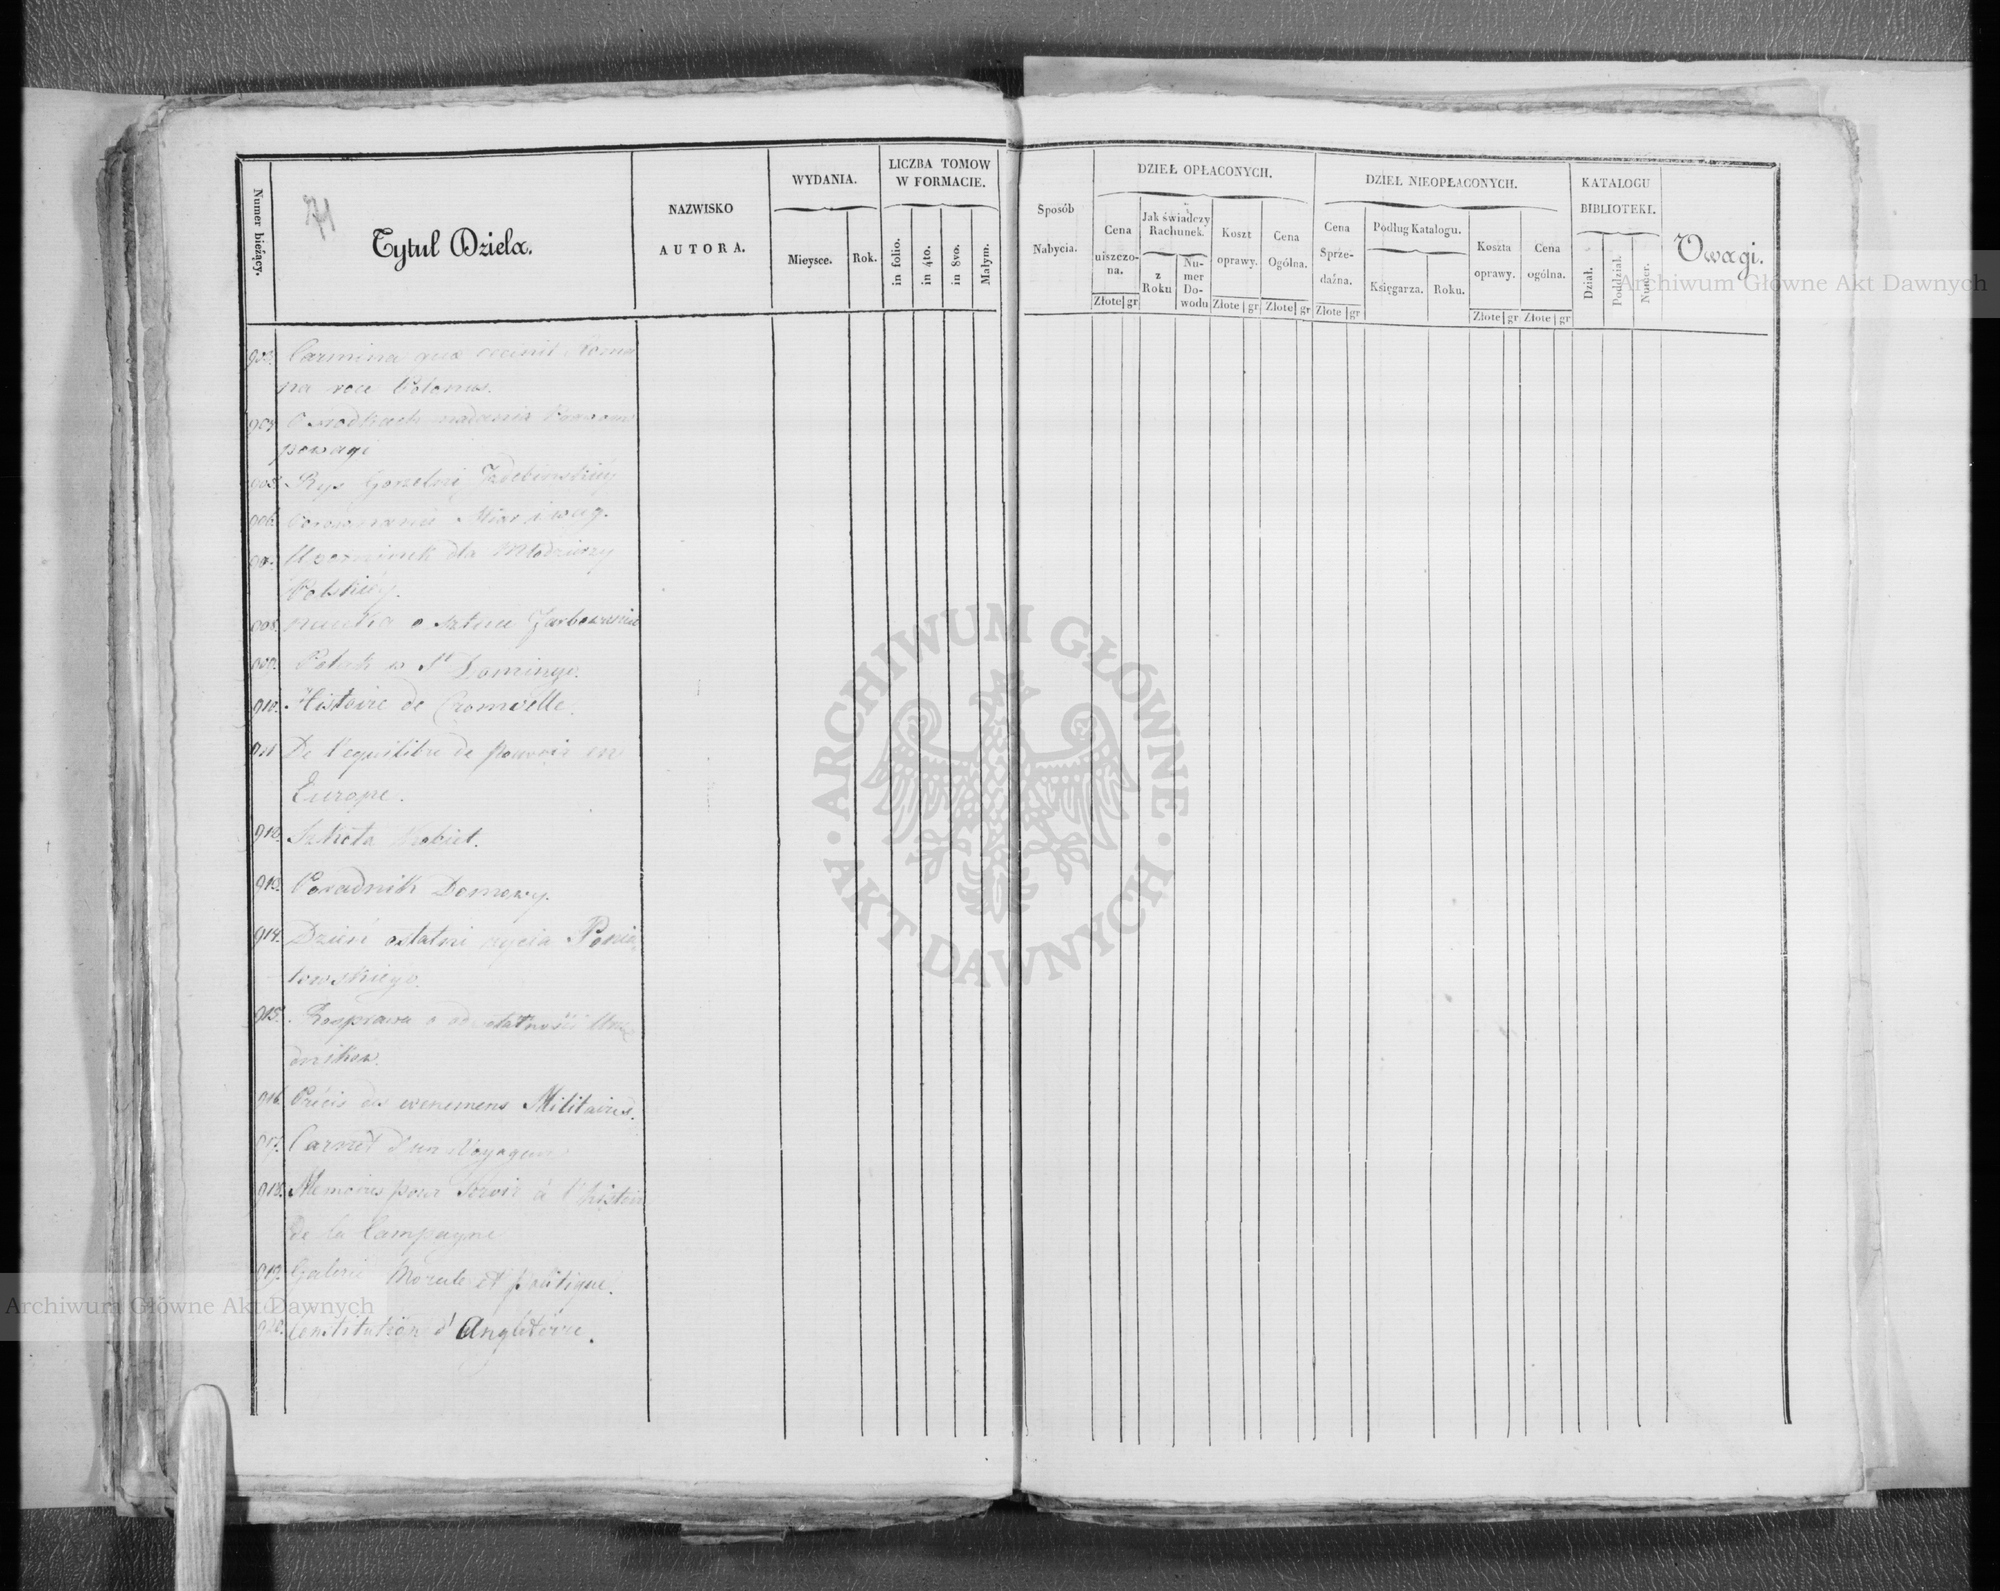 71
Numer bieżący.
Tytuł Dzieła.
NAZWISKO
AUTORA.
WYDANIA.
Mieysce.
Rok.
LICZBA TOMOW
W FORMACIE.
in folio.
in 4to.
in 8vo.
Małym.
Sposób
Nabycia.
DZIEŁ OPŁACONYCH.
Cena
uiszczo-
na.
Złote gr
Jak świadczy
Rachunek.
z
Roku
Nu-
mer
Do-
wodu
Koszt
oprawy.
Złote gr
Cena
Ogólna.
Złote gr
DZIEŁ NIEOPŁACONYCH.
Cena
Sprze-
daźna.
Złote gr
Podług Katalogu.
Księgarza.
Roku.
Koszta
oprawy.
Złote gr
Cena
ogólna.
Złote gr
KATALOGU
BIBLIOTEKI.
Dział.
Poddział.
Numer.
Uwagi.
903. Carmina quæ cecinit
na voce Polonus.
904 O srodkach nadania
powagi
905. Rys Gorzelni
906. Porownanie Miar i wag.
907. Upominek dla Młodzieży
Polskiey.
908. nauka o sztuce Farbowania
909. Polak w St Domingo.
910. Histoire de Cromvelle.
911 De l'equilibre de pouvoir en
Europe.
912. Szkoła Kobiet.
913. Poradnik Domowy.
914. Dzień ostatni życia Ponia
towskiego.
915. Rosprawa o Urzę
dnikow.
916. Précis des evenemens Militaires.
917. Carnet d'un Voyageur
918. Memoires pour servir à l'histoire
De la Campagne
919. Galerie Morale et politique.
920. Constitution d'Angleterre.
ARCHIWUM GŁÓWNE AKT DAWNYCH
Archiwum Główne Akt Dawnych
Archiwum Główne Akt Dawnych